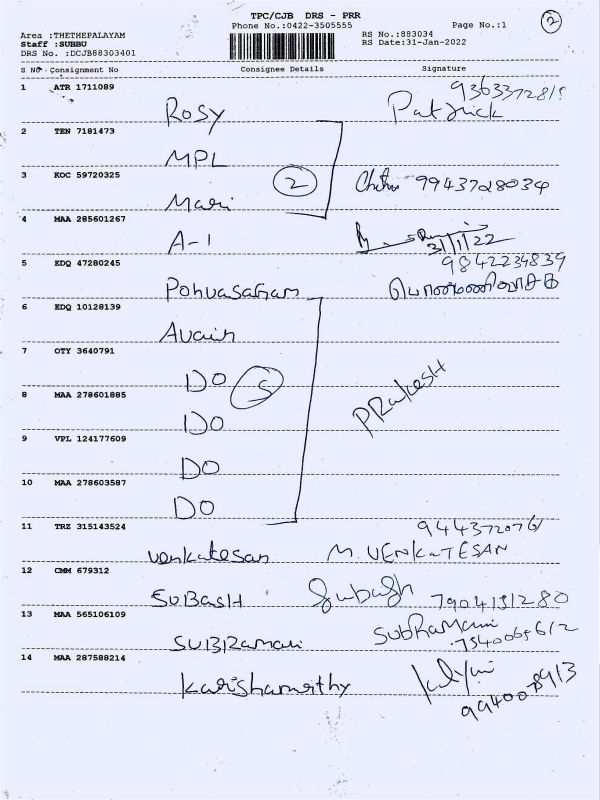 TPC/CJB DRS - PRR
Phone No.:0422-3505555
Page No.:1
2
Area :THETHEPALAYAM
Staff :SUBBU
DRS No. :DCJB88303401
RS No.:883034
RS Date:31-Jan-2022
S No Consignment No Consignee Details Signature
1 ATR 1711089
Rosy Patrick
2 TEN 7181473
MPL
3 KOC 59720325
2
Mari 9943728034
4 MAA 285601267
A-1 31/1/22
5 EDQ 47280245 9842234839
6 EDQ 10128139
7 OTY 3640791
DO 5
8 MAA 278601885
DO PRakesH
9 VPL 124177609
DO
10 MAA 278603587
DO
11 TRZ 315143524
venkatesan M. VENKATESAN
12 CMM 679312
SUBasH Subash 7904131280
13 MAA 565106109
SUBRamani SubRamani
14 MAA 287588214